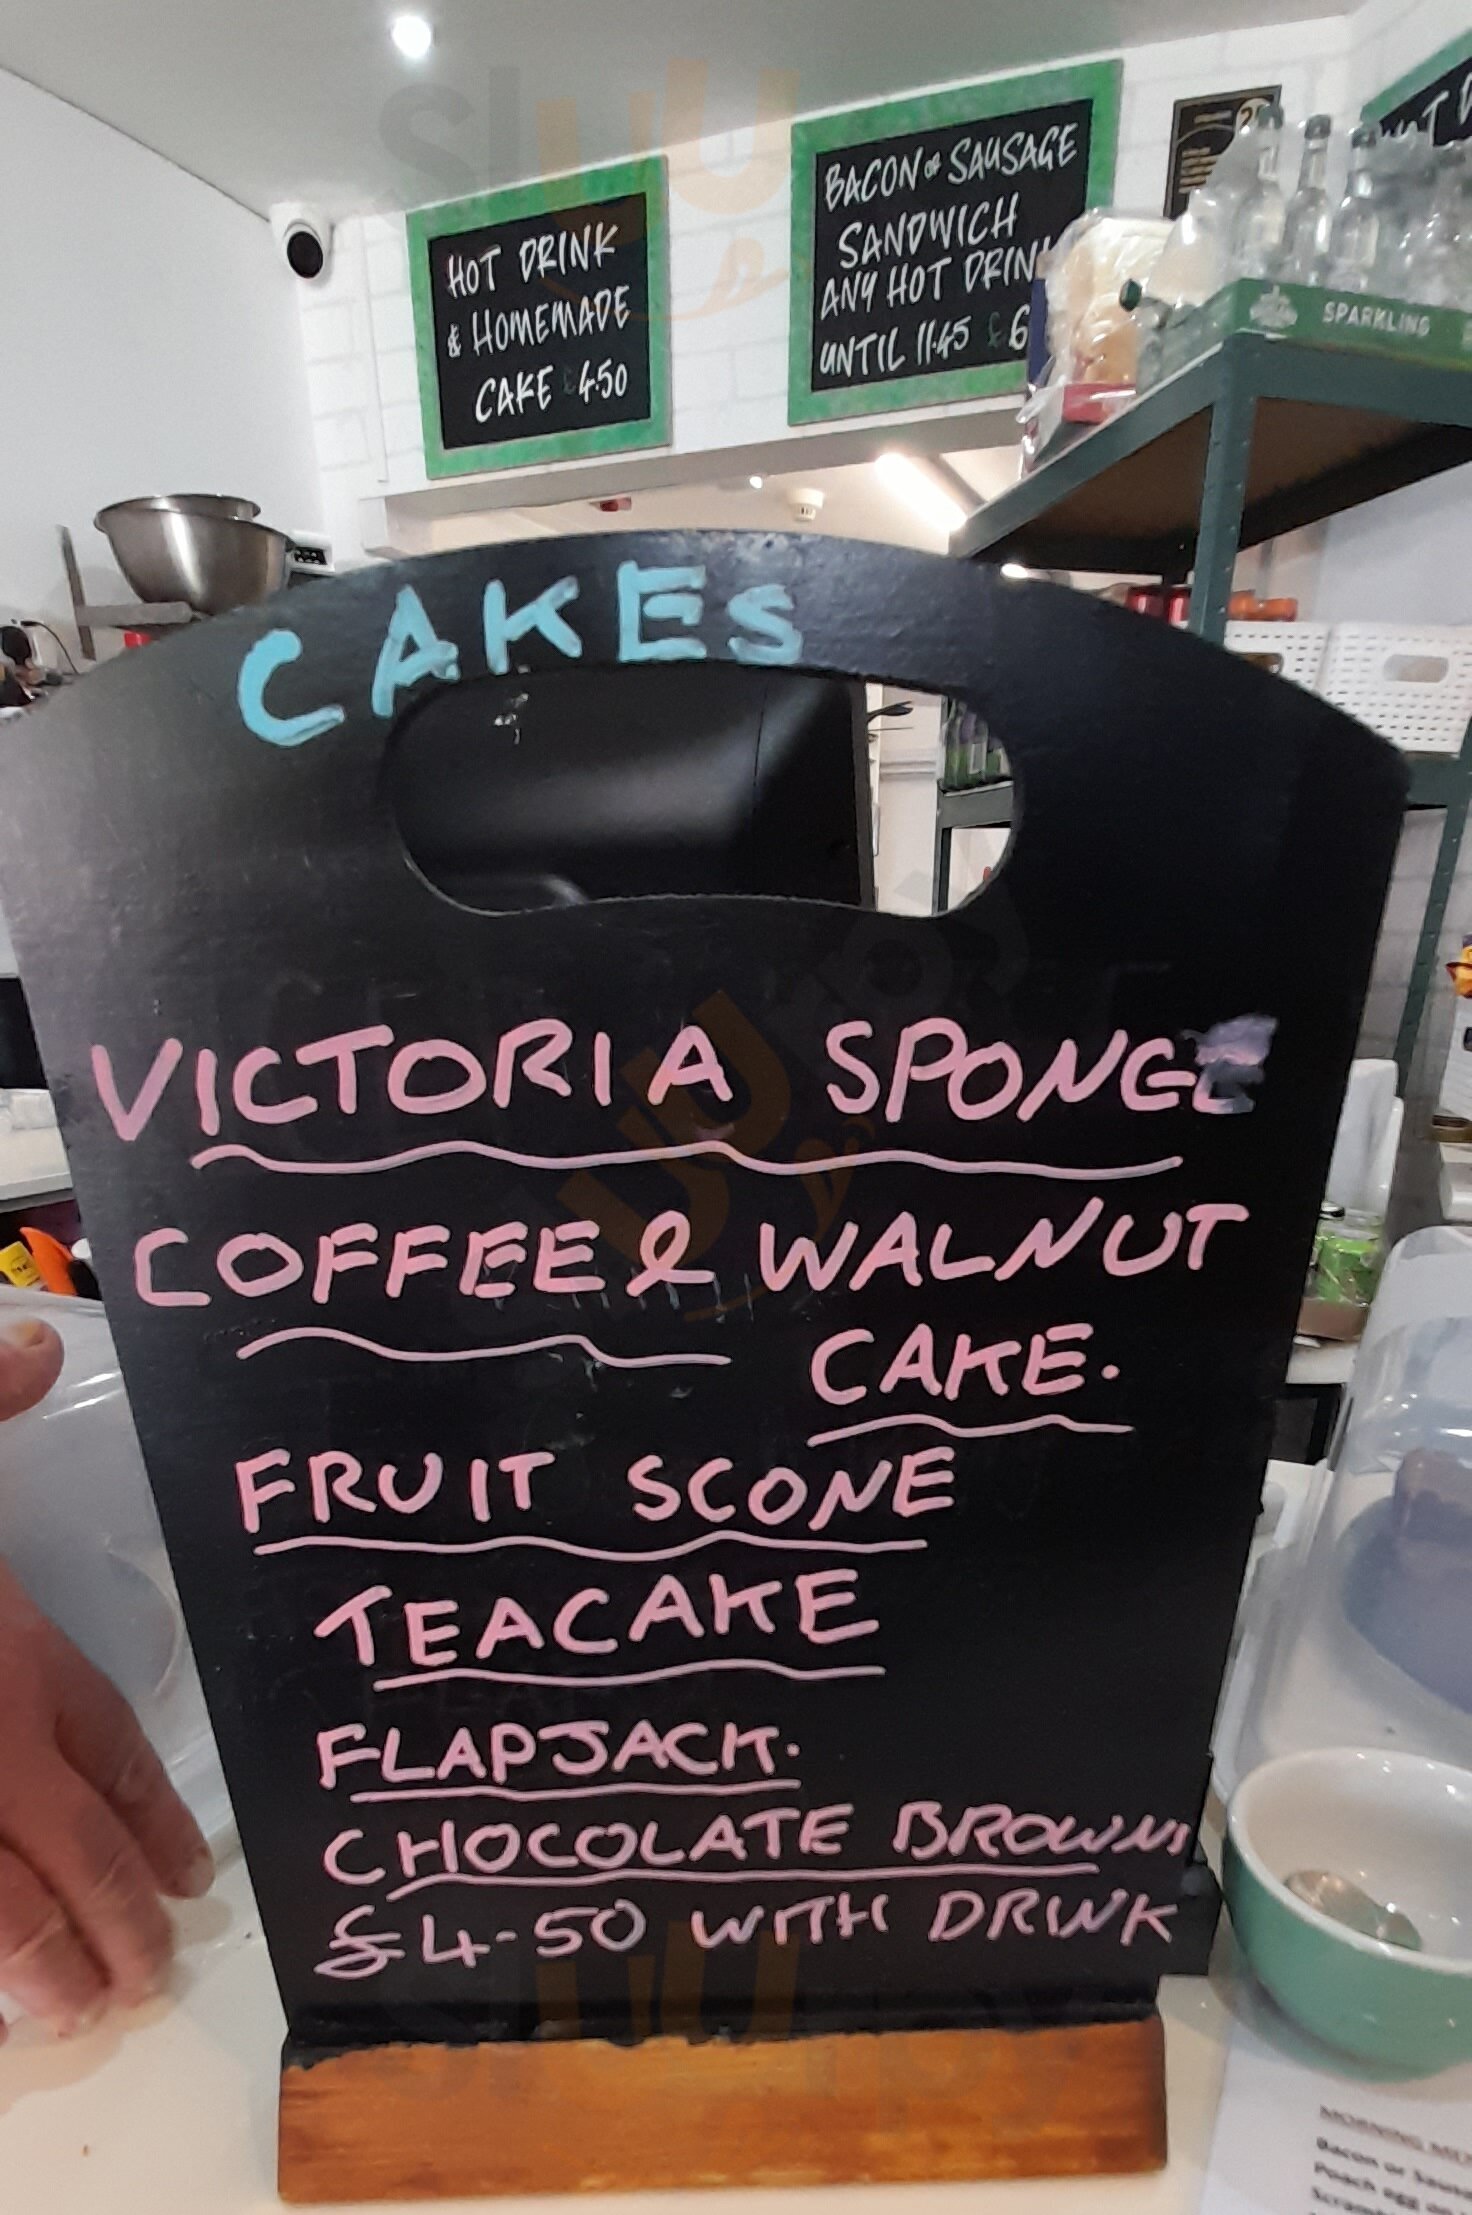 HOT DRINK
& HOMEMADE
CAKE £4.50
BACON or SAUSAGE
SANDWICH
ANY HOT DRINK
UNTIL 11.45 £6
SPARKLING
CAKES
VICTORIA SPONGE
COFFEE & WALNUT
CAKE.
FRUIT SCONE
TEACAKE
FLAPJACK.
CHOCOLATE BROWNS
£4-50 WITH DRINK
MORNING
Bacon or
Poach egg on